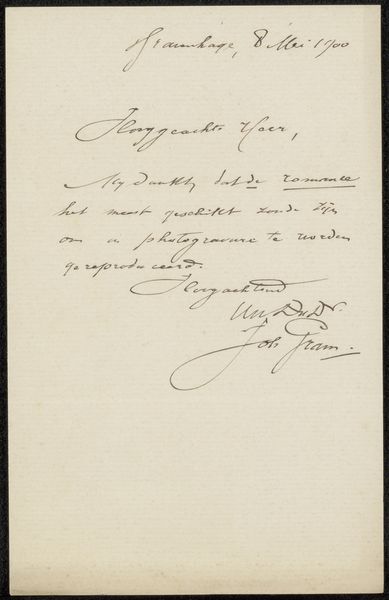 s'Gravenhage, 8 Mei 1900
Hooggeachte Heer,
My dunkt, dat de romance
het meest geschikt zoude zijn
om in photogravure te worden
gereproduceerd.
Hoogachtend
Uw Dw Dr.
Joh Gram.